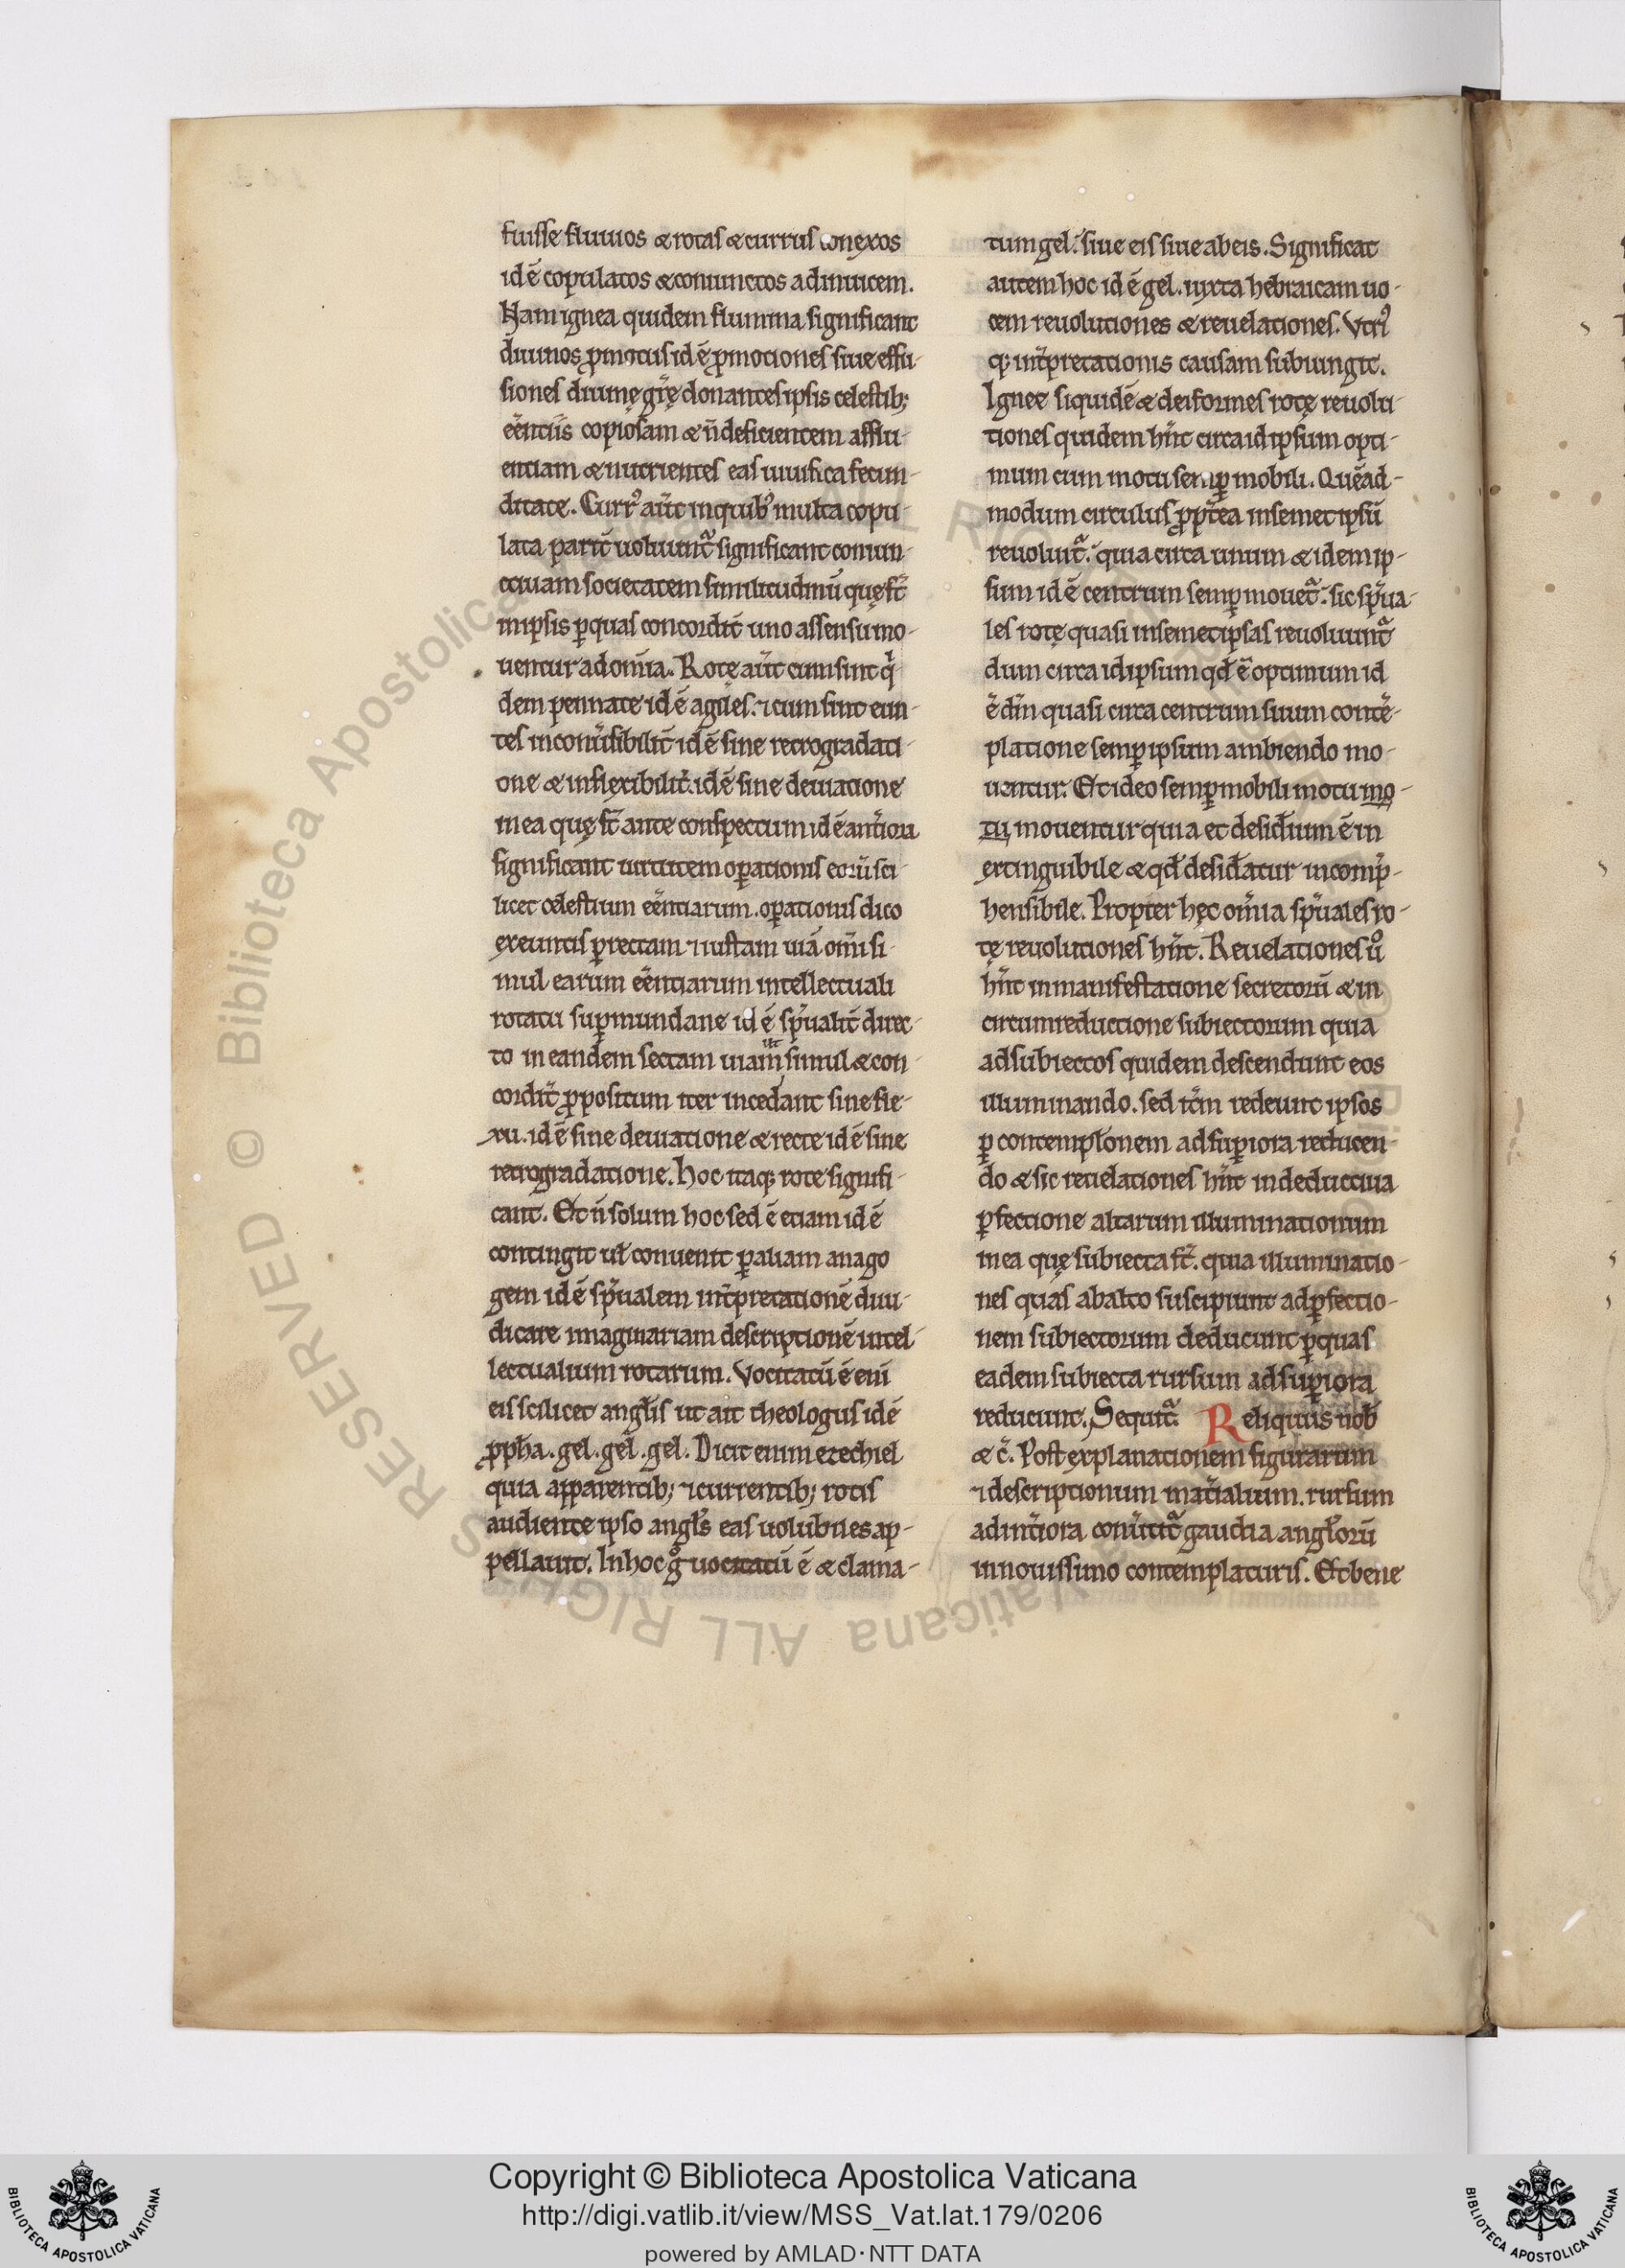 fuisse fluuios & rotas & currus conexos
id ē copulatos & coniunctos adinuicem.
Nam ignea quidem flumina significant
diuinos ꝓmotus id ē ꝓmotiones siue effu-
siones diuinę gr̄ę donantes ipsis celestib;
eēntiis copiosam & n̄ deficientem afflu-
entiam & nutrientes eas uiuifica fecun-
ditate. Curr᷒ aūt in quib᷒ multa copu-
lata parit̄ uoluunt᷑ significant coniun-
ctiuam societatem similitudinū quę st̄
in ipsis ꝑ quas concordit̄ uno assensu mo-
uentur ad om̄ia. Rotę aūt cum sint qͥ
dem pennate id ē agiles. ⁊ cum sint eun-
tes inconūsibilit̄ id ē sine retrogradati-
one & inflexibilit̄. id ē sine deuiatione
in ea quę st̄ ante conspectum id ē ant̄iora
significant uirtutem oꝑationis eorū sci-
licet celestium eēntiarum. oꝑationis dico
exeuntis ꝑ rectam ⁊ iustam uiā om̄i si-
mul earum eēntiarum intellectuali
rotatu suꝑmundane id ē sp̄ualit̄ direc-
to in eandem sectam uiam ut simul & con-
cordit̄ ꝓpositum iter incedant sine fle-
xu. id ē sine deuiatione & recte id ē sine
retrogradatione. Hoc itaq; rote signifi-
cant. Et n̄ solum hoc sed ē etiam id ē
contingit ul̄ conuenit ꝑ aliam anago
gem id ē sp̄ualem int̄pretationē diiu-
dicare imaginariam descriptionē intel-
lectualium rotarum. Vocitatū ē eni
eis scilicet angl̄is ut ait theologus id ē
ꝓph̄a. gel. gel. gel. Dicit enim ezechiel
quia apparentib; ⁊ currentib; rotis
audiente ipso angl̄s eas uolubiles ap-
pellauit. In hoc gͦ uocitatū ē & clama-
tum gel. siue eis siue ab eis. Significat
autem hoc id ē gel. iuxta hebraicam uo-
cem reuolutiones & reuelationes. Vtri᷒
q; int̄pretationis causam subiungit.
Ignee siquidē & deiformes rotę reuolu-
tiones quidem hn̄t circa id ipsum opti-
mum cum motu semꝑ mobili. Quēad-
modum circulus ꝓpt̄ea in semet ipsū
reuoluit᷑. quia circa unum & idem ip-
sum id ē centrum semꝑ mouet᷑. sic sp̄ua-
les rotę quasi in semet ipsas reuoluunt᷑
dum circa id ipsum qd̄ ē optimum id
ē dīn quasi circa centrum suum contē-
platione semꝑ ipsum ambiendo mo-
uentur. Et ideo semꝑ mobili motu mo-
tu mouentur quia et desid̄ium ē in
extinguibile & qd̄ desid̄atur incomp̄-
hensibile. Propter hęc om̄ia sp̄uales ro-
tę reuolutiones hn̄t. Reuelationes uͦ
hn̄t in manifestatione secretorū & in
circumreductione subiectorum quia
ad subiectos quidem descendunt eos
illuminando. sed it̄m redeunt ipsos
ꝑ contempl̄onem ad suꝑiora reducen-
do & sic reuelationes hn̄t in deductiua
ꝑfectione altarum illuminationum
in ea quę subiecta st̄. quia illuminatio-
nes quas ab alto suscipiunt ad ꝑfectio-
nem subiectorum deducunt ꝑ quas
eadem subiecta rursum ad suꝑiora
reducunt. Sequit᷑. Reliquūs nob̄
& c̄. Post explanationem figurarum
⁊ descriptionum mat̄ialium. rursum
ad int̄iora conūtit᷑ gaudia angl̄orū
in nouissimo contemplaturis. Et bene
© Biblioteca Apostolica Vaticana ALL RIGHTS RESERVED
Copyright © Biblioteca Apostolica Vaticana
http://digi.vatlib.it/view/MSS_Vat.lat.179/0206
powered by AMLAD·NTT DATA
BIBLIOTECA APOSTOLICA VATICANA
BIBLIOTECA APOSTOLICA VATICANA